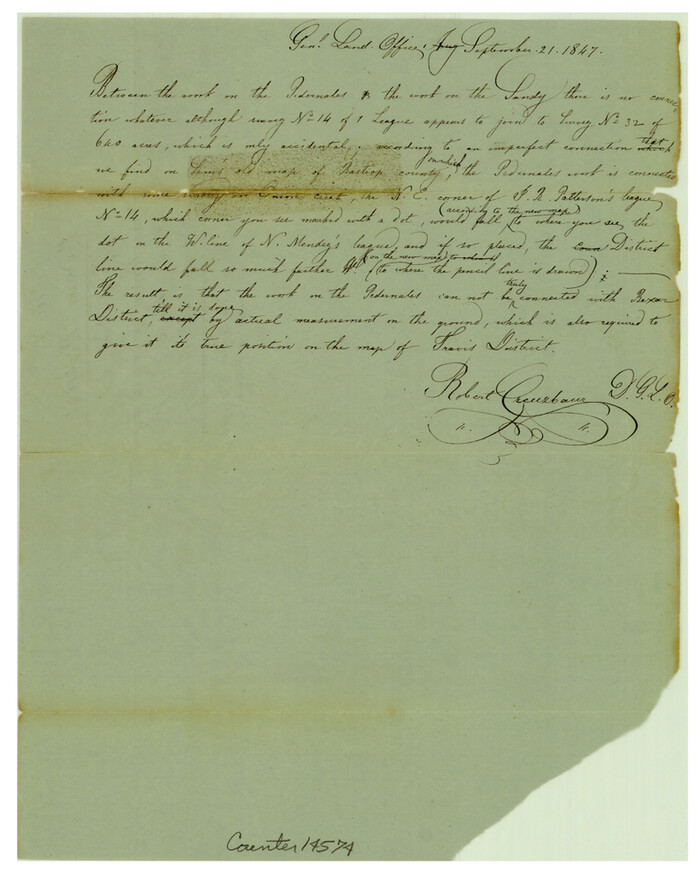 Genl Land Office, Aug September. 21. 1847.
Between the work on the Pedernales & the work on the Sandy there is no connec-
tion whatever although survey No 14 of 1 League appears to join to Survey No 32 of
640 acres, which is only accidental; according to an imperfect connection that which
we find on old map of Bastrop county, on which the Pedernales work is connected
with some survey on Onion Creek, the N. E. corner of Patterson's league
No 14, which corner you see marked with a dot, would fall (according to the new map) to where you see the
dot in the W. line of N. Mendez's league, and if so placed, the District
line would fall so much further W. (on the new map to where the pencil line is drawn)
The result is that the work on the Pedernales can not be truly connected with Bexar
District, till it is done except by actual measurement on the ground, which is also required to
give it its true position on the map of Travis District.
Robert Creuzbaur D. G. L. O.
Counter 14574